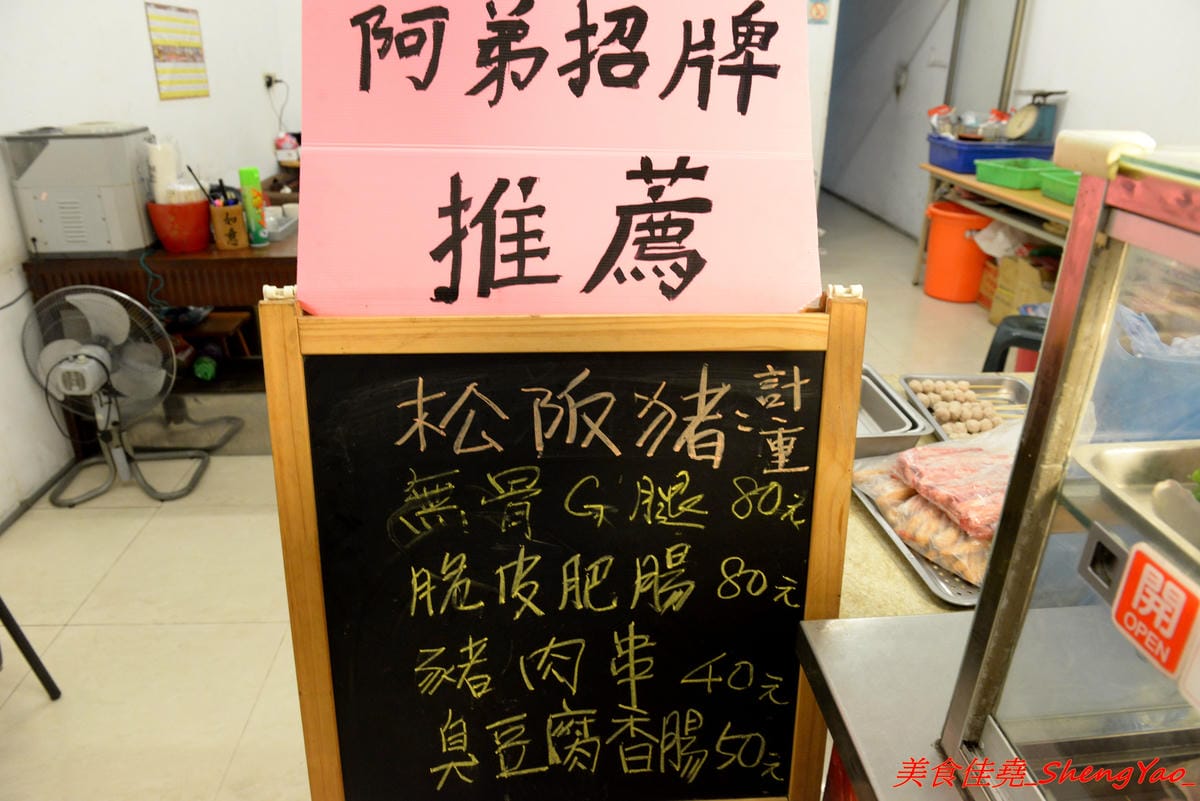 阿弟招牌
推薦
松阪豬 計重
無骨G腿 80元
脆皮肥腸 80元
豬肉串 40元
臭豆腐香腸 50元
如意
開
OPEN
美食佳堯_ShengYao_